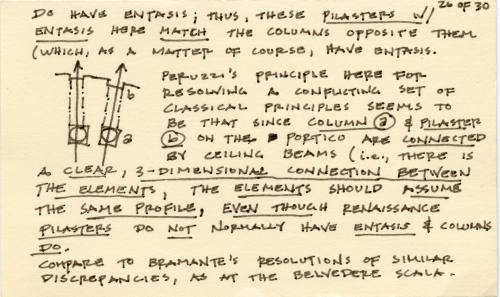 26 OF 30
DO HAVE ENTASIS; THUS, THESE PILASTERS W/
ENTASIS HERE MATCH THE COLUMNS OPPOSITE THEM
(WHICH, AS A MATTER OF COURSE, HAVE ENTASIS.
PERUZZI'S PRINCIPLE HERE FOR
RESOLVING A CONFLICTING SET OF
CLASSICAL PRINCIPLES SEEMS TO
BE THAT SINCE COLUMN a & PILASTER
b ON THE PORTICO ARE CONNECTED
BY CEILING BEAMS (i.e., THERE IS
A CLEAR, 3-DIMENSIONAL CONNECTION BETWEEN
THE ELEMENTS, THE ELEMENTS SHOULD ASSUME
THE SAME PROFILE, EVEN THOUGH RENAISSANCE
PILASTERS DO NOT NORMALLY HAVE ENTASIS & COLUMNS
DO.
COMPARE TO BRAMANTE'S RESOLUTIONS OF SIMILAR
DISCREPANCIES, AS AT THE BELVEDERE SCALA.
b
a